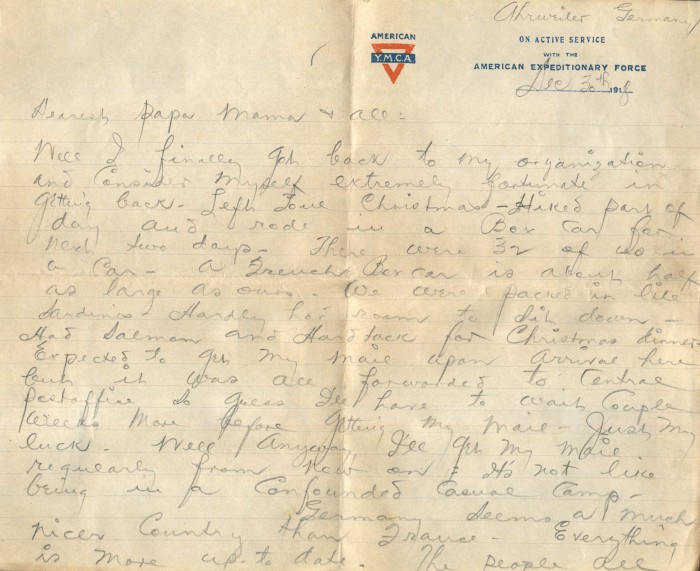 Ahrweiler Germany
AMERICAN
Y.M.C.A.
ON ACTIVE SERVICE
WITH THE
AMERICAN EXPEDITIONARY FORCE
Dec 30th 1918
Dearest Papa Mama & all:
Well I finally got back to my organization
and consider myself extremely fortunate in
getting back - Left Toul Christmas - Hiked part of
day and rode in a Box car for
next two days - There were 32 of us in
a Car - A French Box car is about half
as large as ours. We were packed in like
Sardines - Hardly had room to sit down -
Had Salmon and Hardtack for Christmas dinner -
Expected to get my mail upon arrival here
but it was all forwarded to Central
Postoffice So guess I'll have to wait Couple
weeks more before getting my mail - Just my
luck - Well Anyway I'll get my mail
regularly from now on & It's not like
being in a Confounded Casual Camp -
Germany seems a much
nicer Country than France - Everything
is more up-to date. The people all